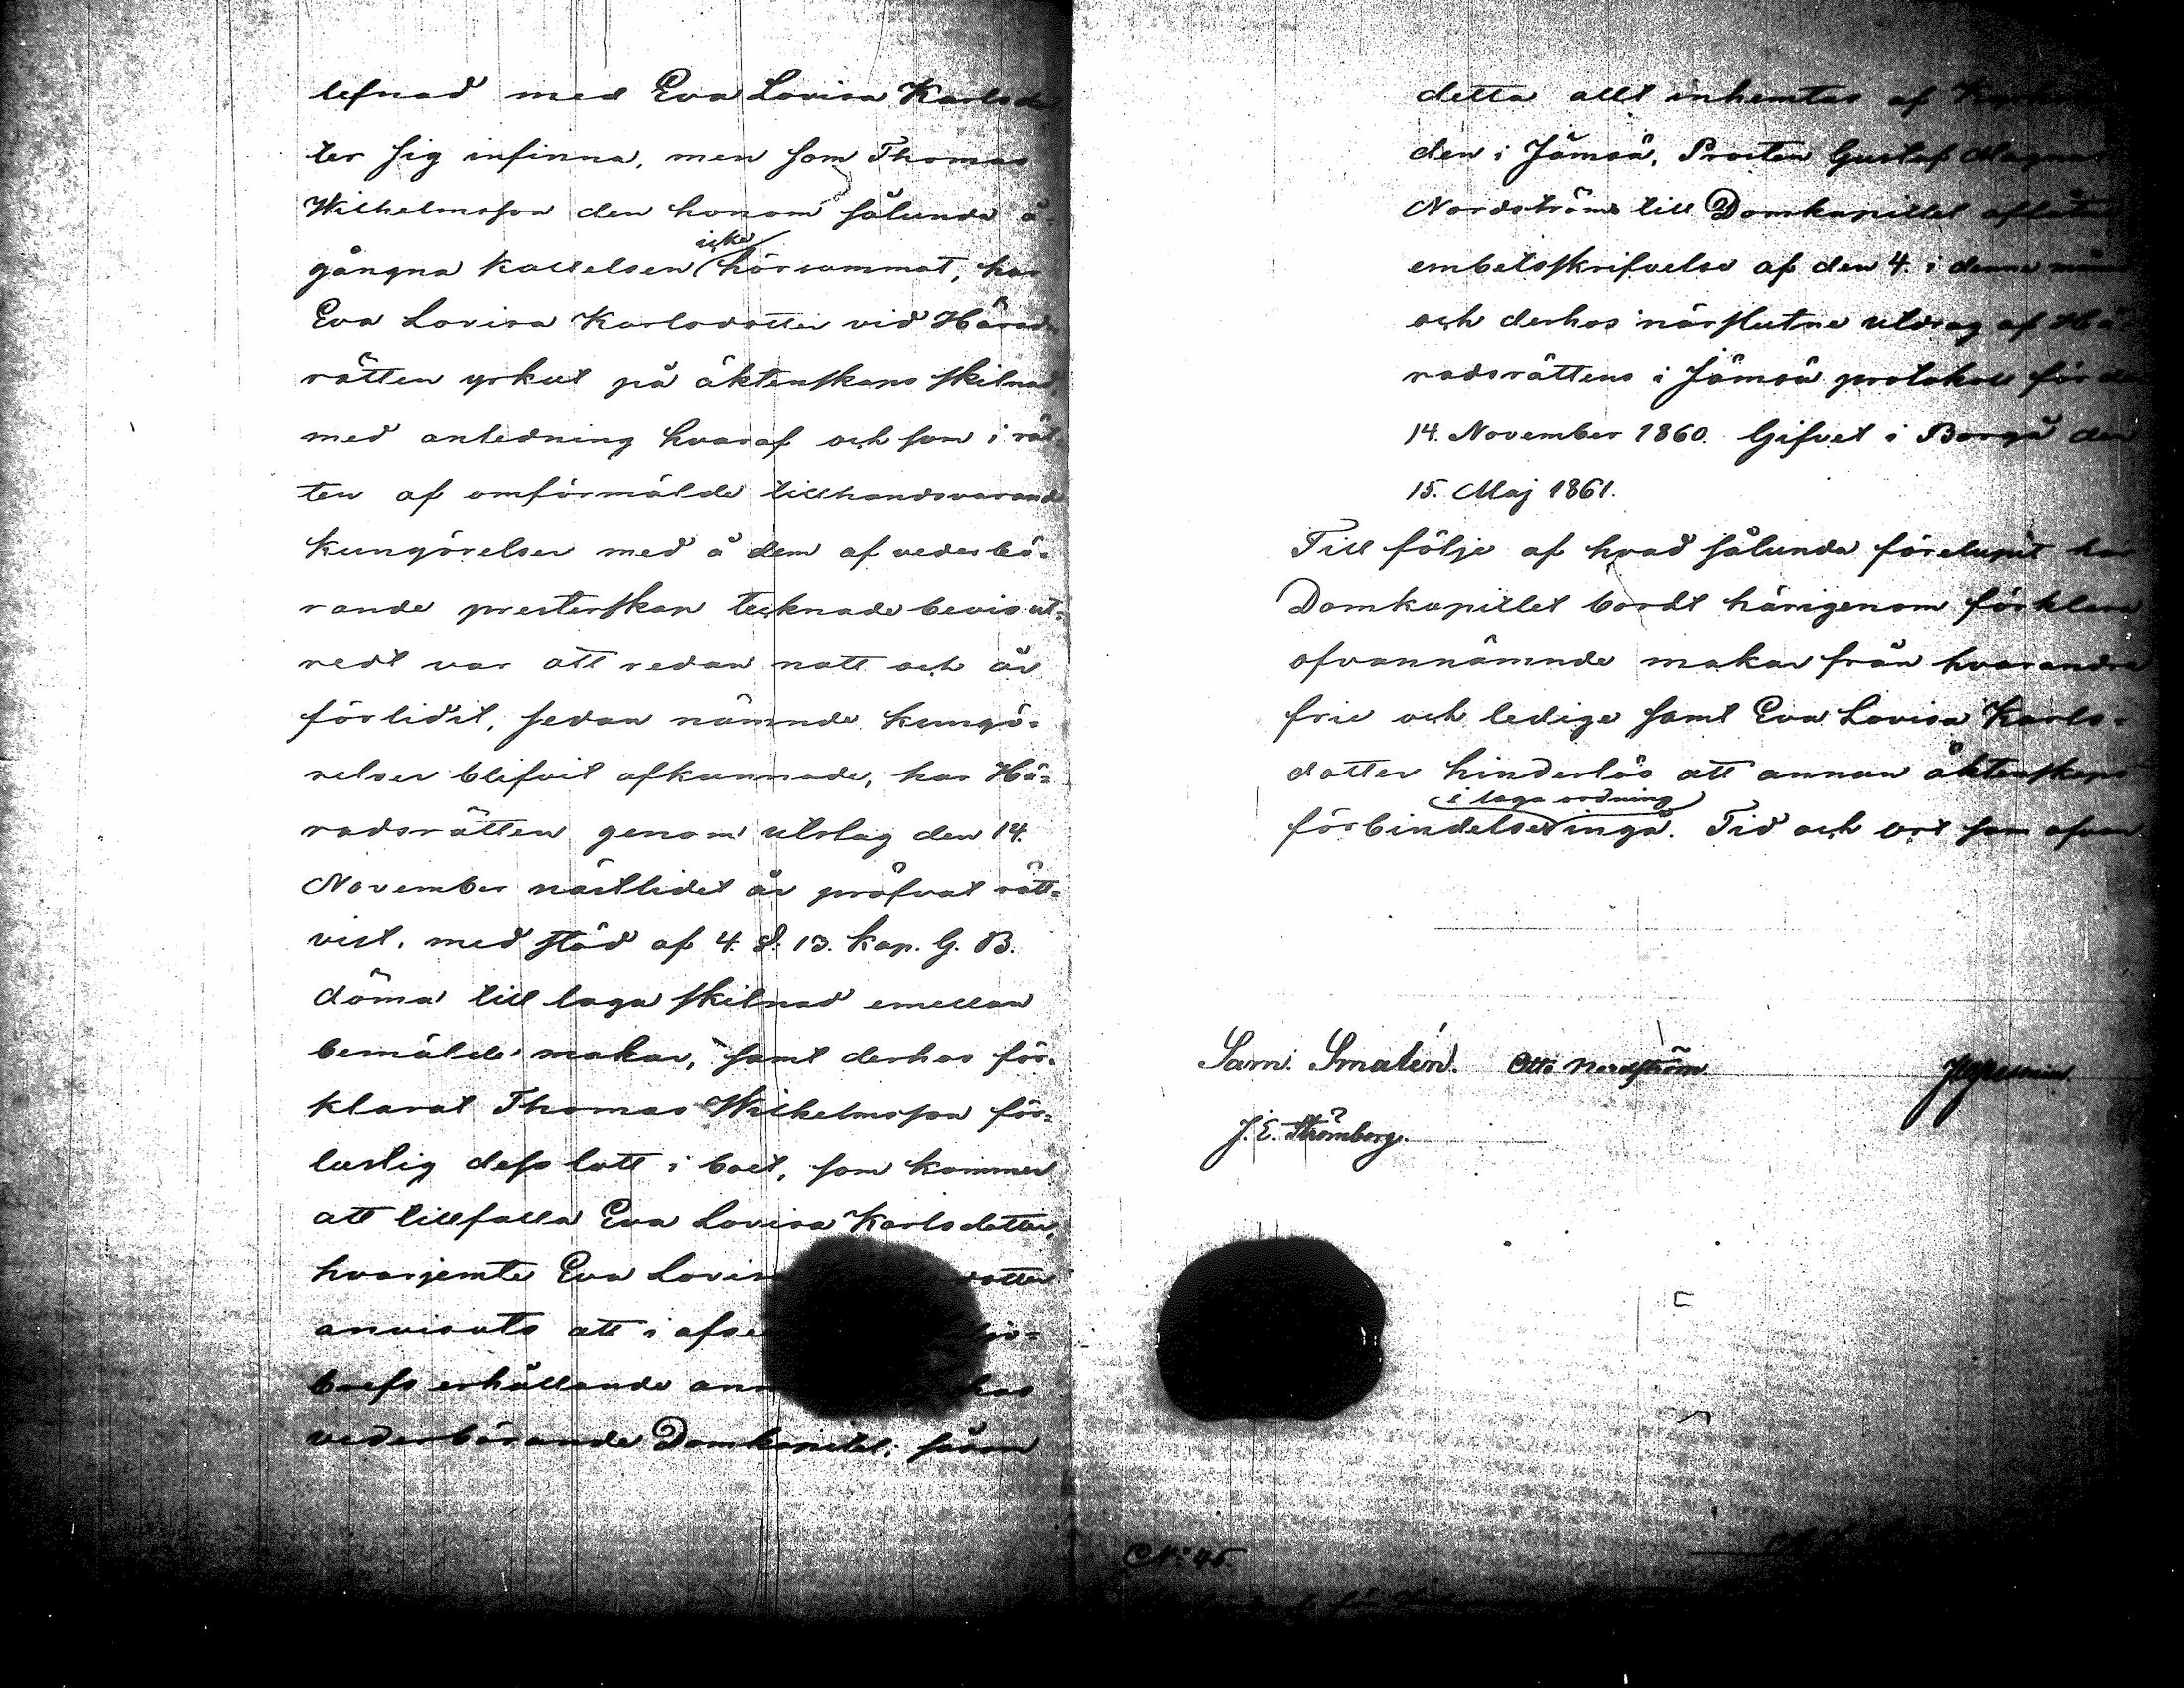 lefnad med Eva Lovisa Karlsdot
ter sig infinna, men som Thomas
Wilhelmsson den honom sålunda å-
gångna kallelsen icke hörsammat, har
Eva Lovisa Karlsdotter vid Härads
rätten yrkat på äktenskaps skilnad,
med anledning hvaraf och som i rät
ten af omförmälde tillhandsvarande
kungörelser med å dem af vederbö-
rande presterskap tecknade bevis ut-
redt var att redan natt och år
förlidit, sedan nämnde kungö-
relser blifvit afkunnade, har Hä-
radsrätten genom utslag den 14.
November nästlidet år pröfvat rätt-
vist, med stöd af 4. §. 13. kap. G. B.
döma till laga skilnad emellan
bemälde makar, samt derhos för-
klarat Thomas Wilhelmsson för-
lustig dess lott i boet, som kommer
att tillfalla Eva Lovisa Karlsdotter,
hvarjemte Eva Lovis dotter
anvisats att i afse
brefs erhållande an hos
vederbörande Domkapitel; såsom
detta allt inhemtas af
den i Jämsä, Prosten Gustaf Magnus
Nordströms till Domkapitlet aflåtna
embetsskrifvelse af den 4. i denna månad
och derhos närslutne utdrag af Hä-
radsrättens i Jämsä protokoll för den
14. November 1860. Gifvet i Borgå den
15. Maj 1861.
Till följe af hvad sålunda förelupit har
Domkapitlet bordt härigenom förklara
ofvannämnde makar från hvarandra
frie och ledige samt Eva Lovisa Karls-
dotter hinderlös att annan äktenskaps
förbindelse i laga ordning ingå. Tid och ort som ofvan.
Sam. Smalén. Otto Nordström
J. E. Strömborg.
N:o 45.